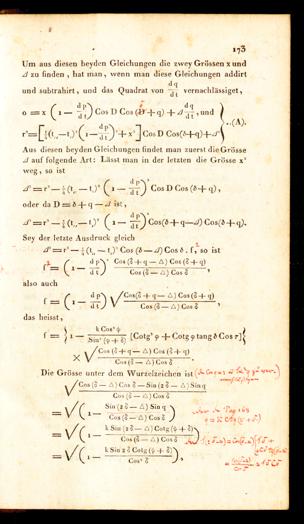 173
Um aus diesen beyden Gleichungen die zwey Grössen x und
Δ zu finden, hat man, wenn man diese Gleichungen addirt
und subtrahirt, und das Quadrat von dq/dt vernachlässiget,
o = x (1 − dp/dt) Cos D Cos (δ + q) + Δ dq/dt, und
r' = [¼(t,,−t,)² (1 − dp/dt)² + x²] Cos D Cos(δ+q) + Δ } ..(A).
Aus diesen beyden Gleichungen findet man zuerst die Grösse
Δ auf folgende Art: Lässt man in der letzten die Grösse x²
weg, so ist
Δ = r' − ¼(t,,−t,)² (1 − dp/dt)² Cos D Cos (δ + q),
oder da D = δ + q − Δ ist,
Δ = r' − ¼(t,,−t,)² (1 − dp/dt)² Cos(δ+q−Δ) Cos(δ+q).
Sey der letzte Ausdruck gleich
Δ = r' − ¼(t,,−t,)² Cos (δ−Δ) Cos δ . f², so ist
f² = (1 − dp/dt)² Cos (δ + q − △) Cos (δ + q) / Cos (δ − △) Cos δ,
also auch
f = (1 − dp/dt) √ Cos (δ + q − △) Cos (δ + q) / Cos (δ − △) Cos δ,
das heisst,
f = {1 − k Cos² ψ / Sin² (φ + δ) [Cotg² φ + Cotg φ tang δ Cos τ]}
× √ Cos (δ + q − △) Cos (δ + q) / Cos (δ − △) Cos δ.
Die Grösse unter dem Wurzelzeichen ist
√ Cos (δ − △) Cos δ − Sin (2 δ − △) Sin q / Cos (δ − △) Cos δ
= √ (1 − Sin (2 δ − △) Sin q / Cos (δ − △) Cos δ)
= √ (1 − k Sin (2 δ − △) Cotg (φ + δ) / Cos (δ − △) Cos δ)
= √ (1 − k Sin 2 δ Cotg (φ + δ) / Cos² δ),